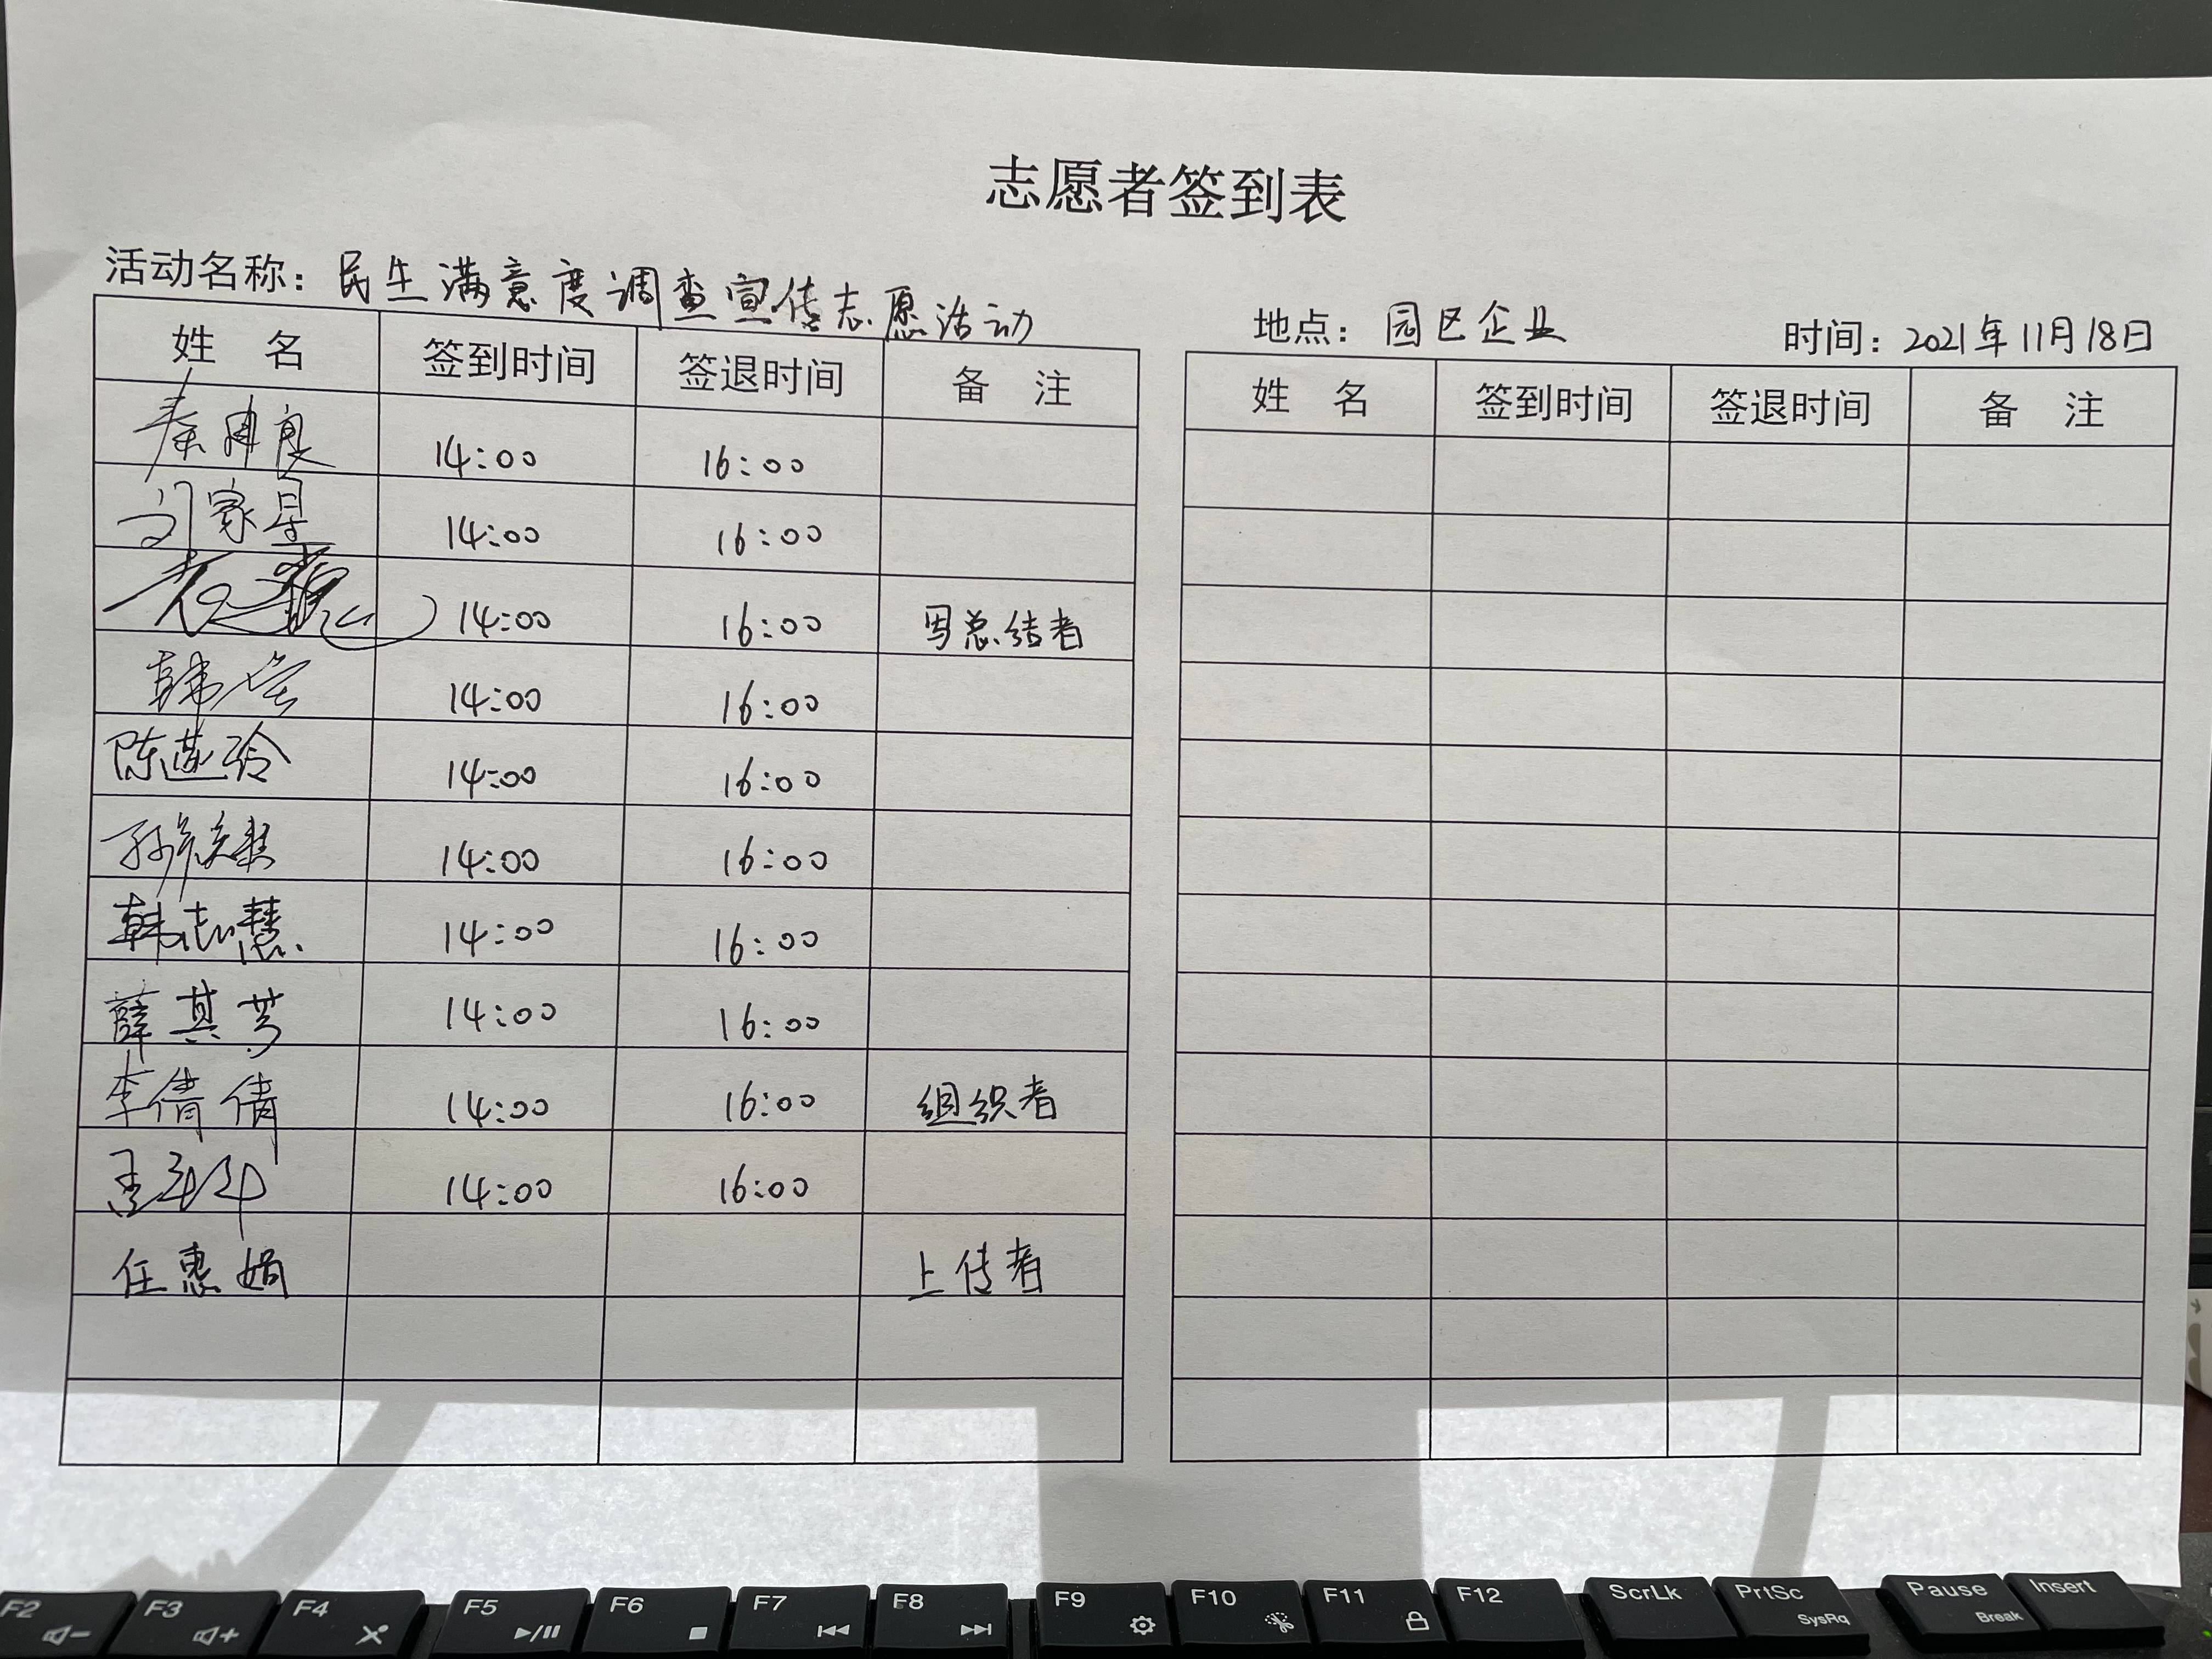 志愿者签到表
活动名称：民生满意度调查宣传志愿活动 地点：园区企业 时间：2021年11月18日
姓 名 签到时间 签退时间 备 注 姓 名 签到时间 签退时间 备 注
秦 良 14:00 16:00
刘家星 14:00 16:00
14:00 16:00 写总结者
韩 14:00 16:00
陈莲玲 14:00 16:00
孙 14:00 16:00
韩志慧 14:00 16:00
薛其芳 14:00 16:00
李倩倩 14:00 16:00 组织者
14:00 16:00
任惠娟 上传者
F2 F3 F4 F5 F6 F7 F8 F9 F10 F11 F12 ScrLk PrtSc SysRq Pause Break Insert